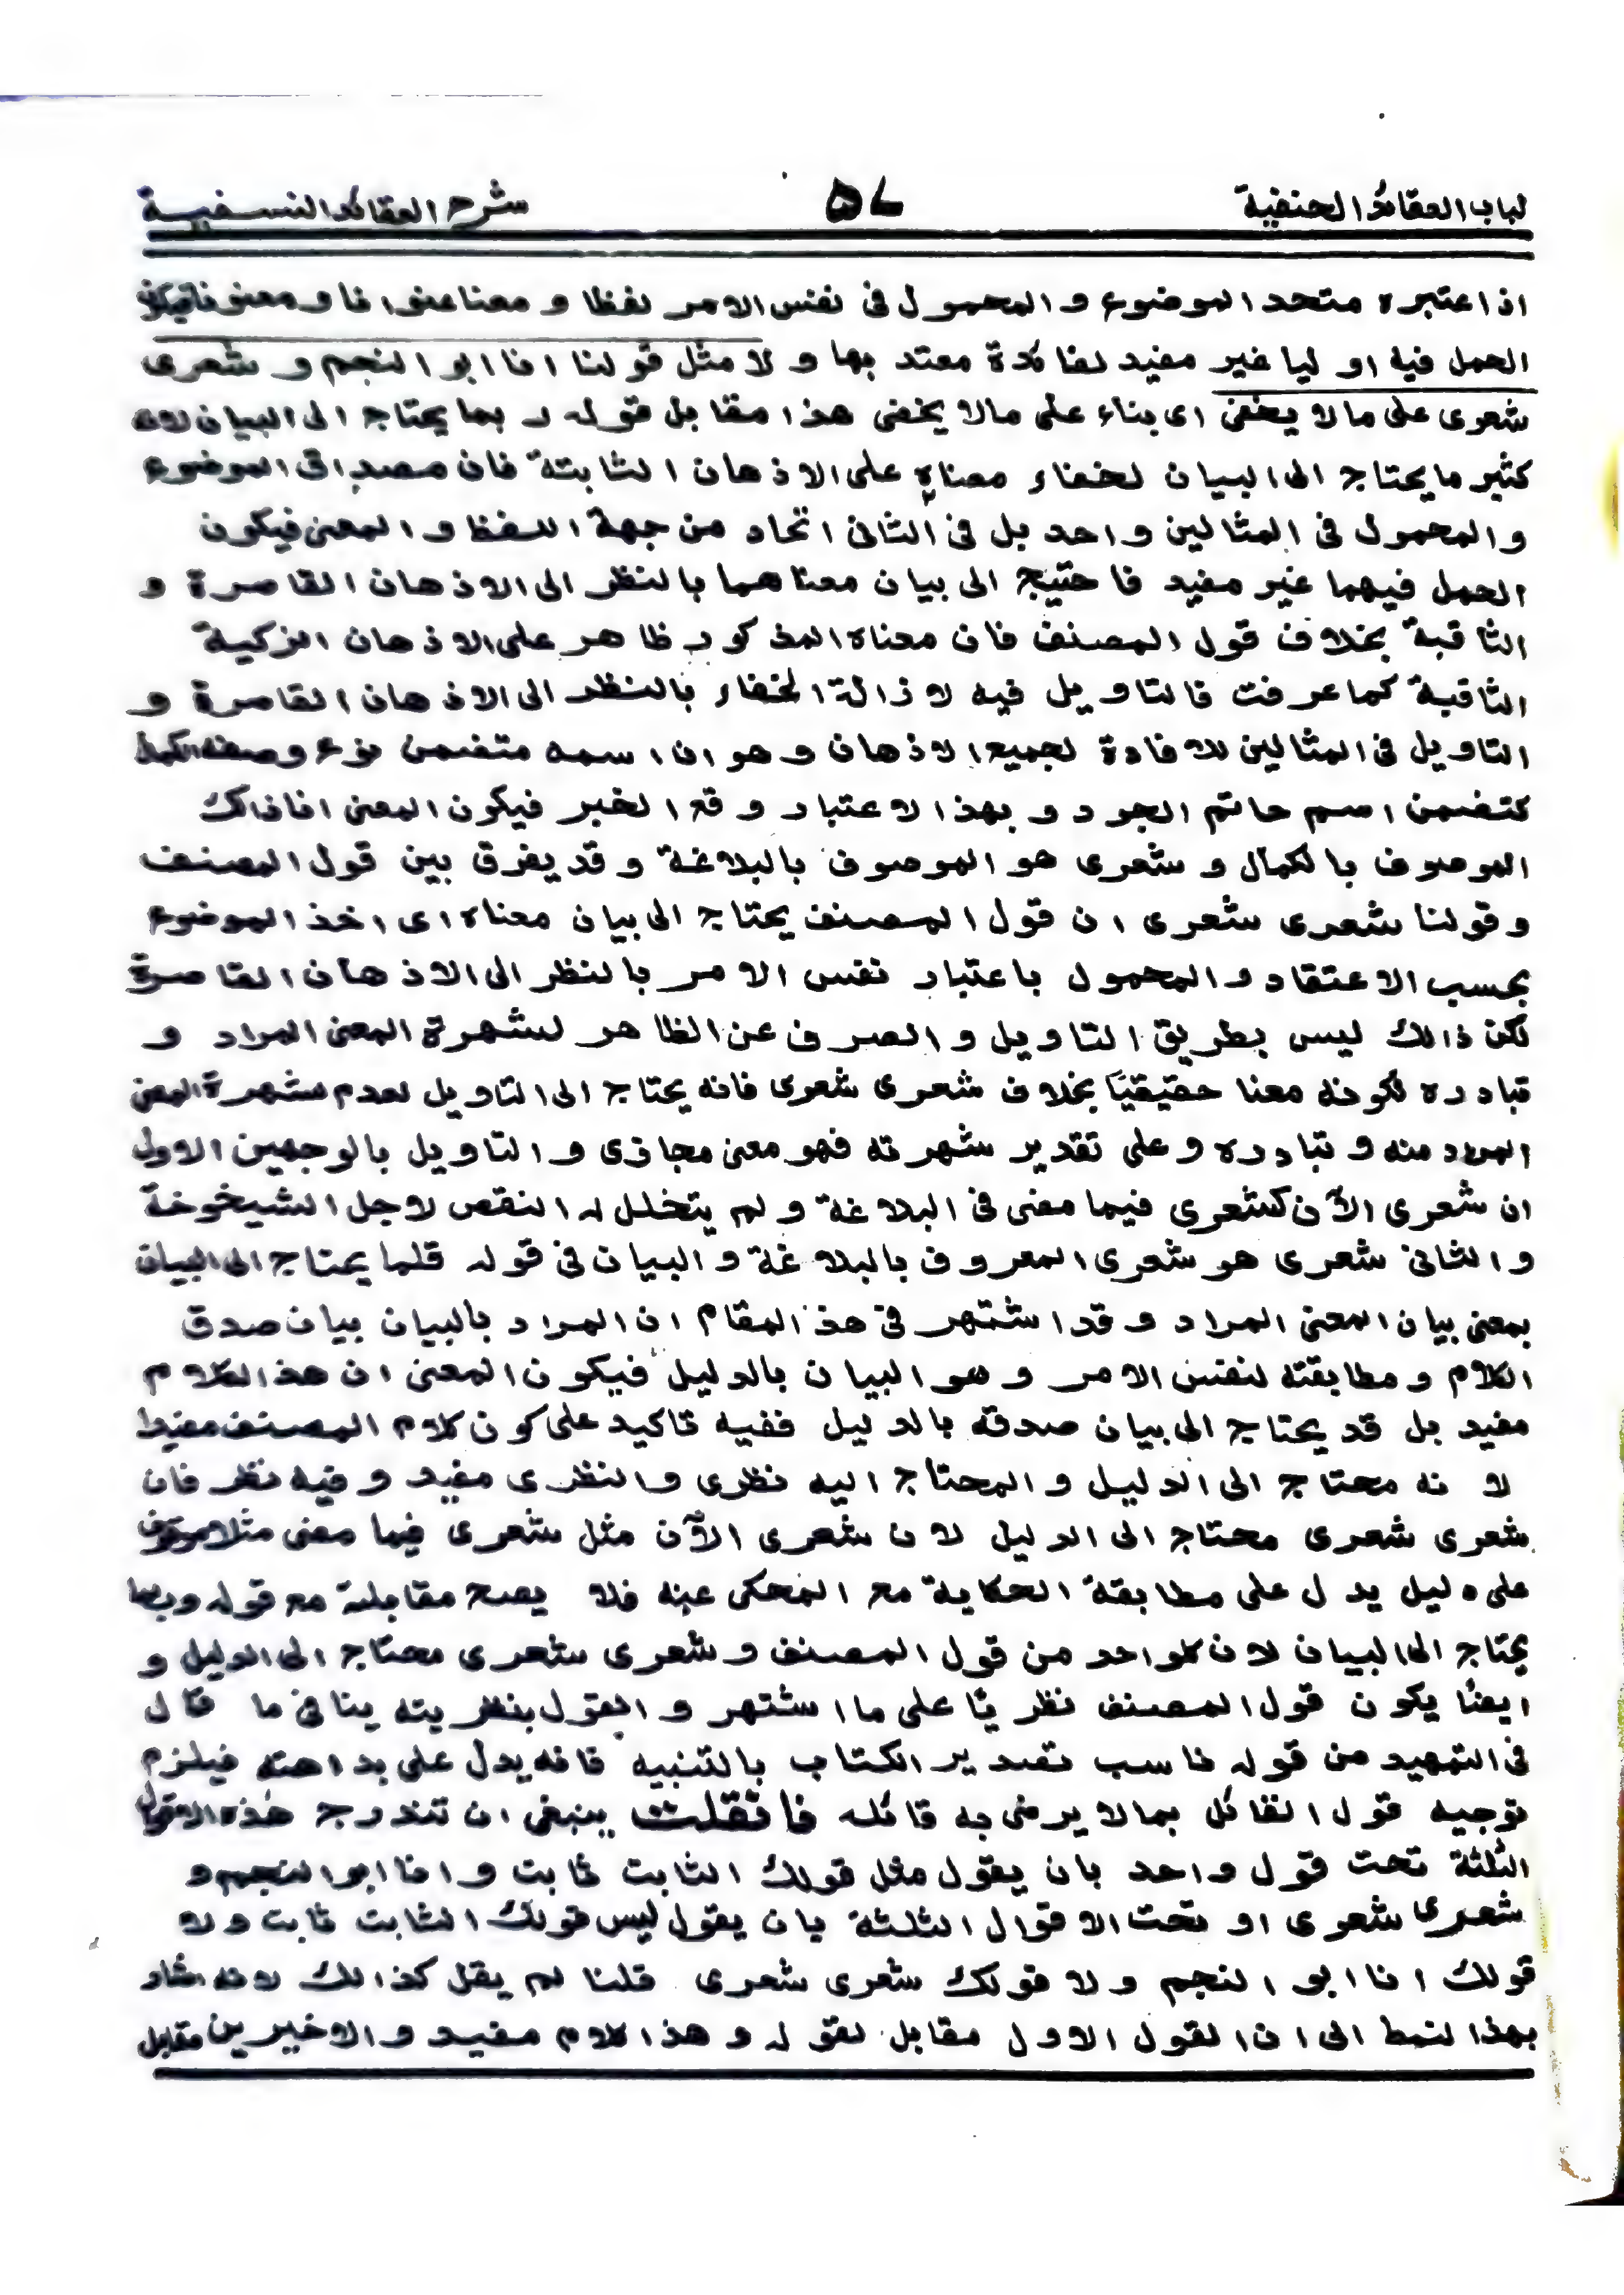 لباب العقائد الحنفية ۵۷ شرح العقائد النسفية
اذا اعتبره متحد الموضوع و المحمول فی نفس الامر لفظا و معنا عنوانا و معنونا فيكون
الحمل فيه او ليا غير مفيد لفائدة معتد بها و لا مثل قولنا انا ابو النجم و شعری
شعری علی ما لا يخفی ای بناء علی ما لا يخفی هذا مقابل قوله ر بما يحتاج الی البيان لانه
كثير ما يحتاج الی البيان لخفاء معناه علی الاذهان الثابتة فان مصداق الموضوع
و المحمول فی المثالين واحد بل فی الثانی اتحاد من جهة اللفظ و المعنی فيكون
الحمل فيهما غير مفيد فاحتيج الی بيان معناهما بالنظر الی الاذهان القاصرة و
الثاقبة بخلاف قول المصنف فان معناه المذكور ظاهر علی الاذهان الزكية
الثاقبة كما عرفت فالتاويل فيه لازالة الخفاء بالنظر الی الاذهان القاصرة و
التاويل فی المثالين للافادة لجميع الاذهان و هو ان اسمه متضمن نوع وصفه الكمال
كتضمن اسم حاتم الجود و بهذا الاعتبار وقع الخبر فيكون المعنی انا ذالك
الموصوف بالكمال و شعری هو الموصوف بالبلاغة و قد يفرق بين قول المصنف
و قولنا شعری شعری ان قول المصنف يحتاج الی بيان معناه ای اخذ الموضوع
بحسب الاعتقاد و المحمول باعتبار نفس الامر بالنظر الی الاذهان القاصرة
لكن ذالك ليس بطريق التاويل و الصرف عن الظاهر لشهرة المعنی المراد و
تبادره لكونه معنا حقيقيًا بخلاف شعری شعری فانه يحتاج الی التاويل لعدم شهرة المعنی
المراد منه و تبادره و علی تقدير شهرته فهو معنی مجازی و التاويل بالوجهين الاول
ان شعری الآن كشعری فيما مضی فی البلاغة و لم يتخلل له النقص لاجل الشيخوخة
و الثانی شعری هو شعری المعروف بالبلاغة و البيان فی قوله قلما يحتاج الی البيان
بمعنی بيان المعنی المراد و قد اشتهر فی هذ المقام ان المراد بالبيان بيان صدق
الكلام و مطابقته لنفس الامر و هو البيان بالدليل فيكون المعنی ان هذ الكلام
مفيد بل قد يحتاج الی بيان صدقه بالدليل ففيه تاكيد علی كون كلام المصنف مفيدا
لا نه محتاج الی الدليل و المحتاج اليه نظری و النظری مفيد و فيه نظر فان
شعری شعری محتاج الی الدليل لان شعری الآن مثل شعری فيما مضی مثلا موقوف
علی دليل يدل علی مطابقة الحكاية مع المحكی عنه فلا يصح مقابلته مع قوله و ربما
يحتاج الی البيان لان كلواحد من قول المصنف و شعری شعری محتاج الی الدليل و
ايضًا يكون قول المصنف نظريًا علی ما اشتهر و القول بنظريته ينافی ما قال
فی التمهيد من قوله ناسب تصدير الكتاب بالتنبيه فانه يدل علی بداهته فيلزم
توجيه قول القائل بما لا يرضی به قائله فانقلت ينبغی ان تندرج هذه الاقوال
الثلثة تحت قول واحد بان يقول مثل قولك الثابت ثابت و انا ابو النجم و
شعری شعری او تحت الاقوال الثلثة بان يقول ليس قولك الثابت ثابت و لا
قولك انا ابو النجم و لا قولك شعری شعری قلنا لم يقل كذالك لانه اشار
بهذا لنمط الی ان القول الاول مقابل لقوله و هذا كلام مفيد و الاخيرين مقابل